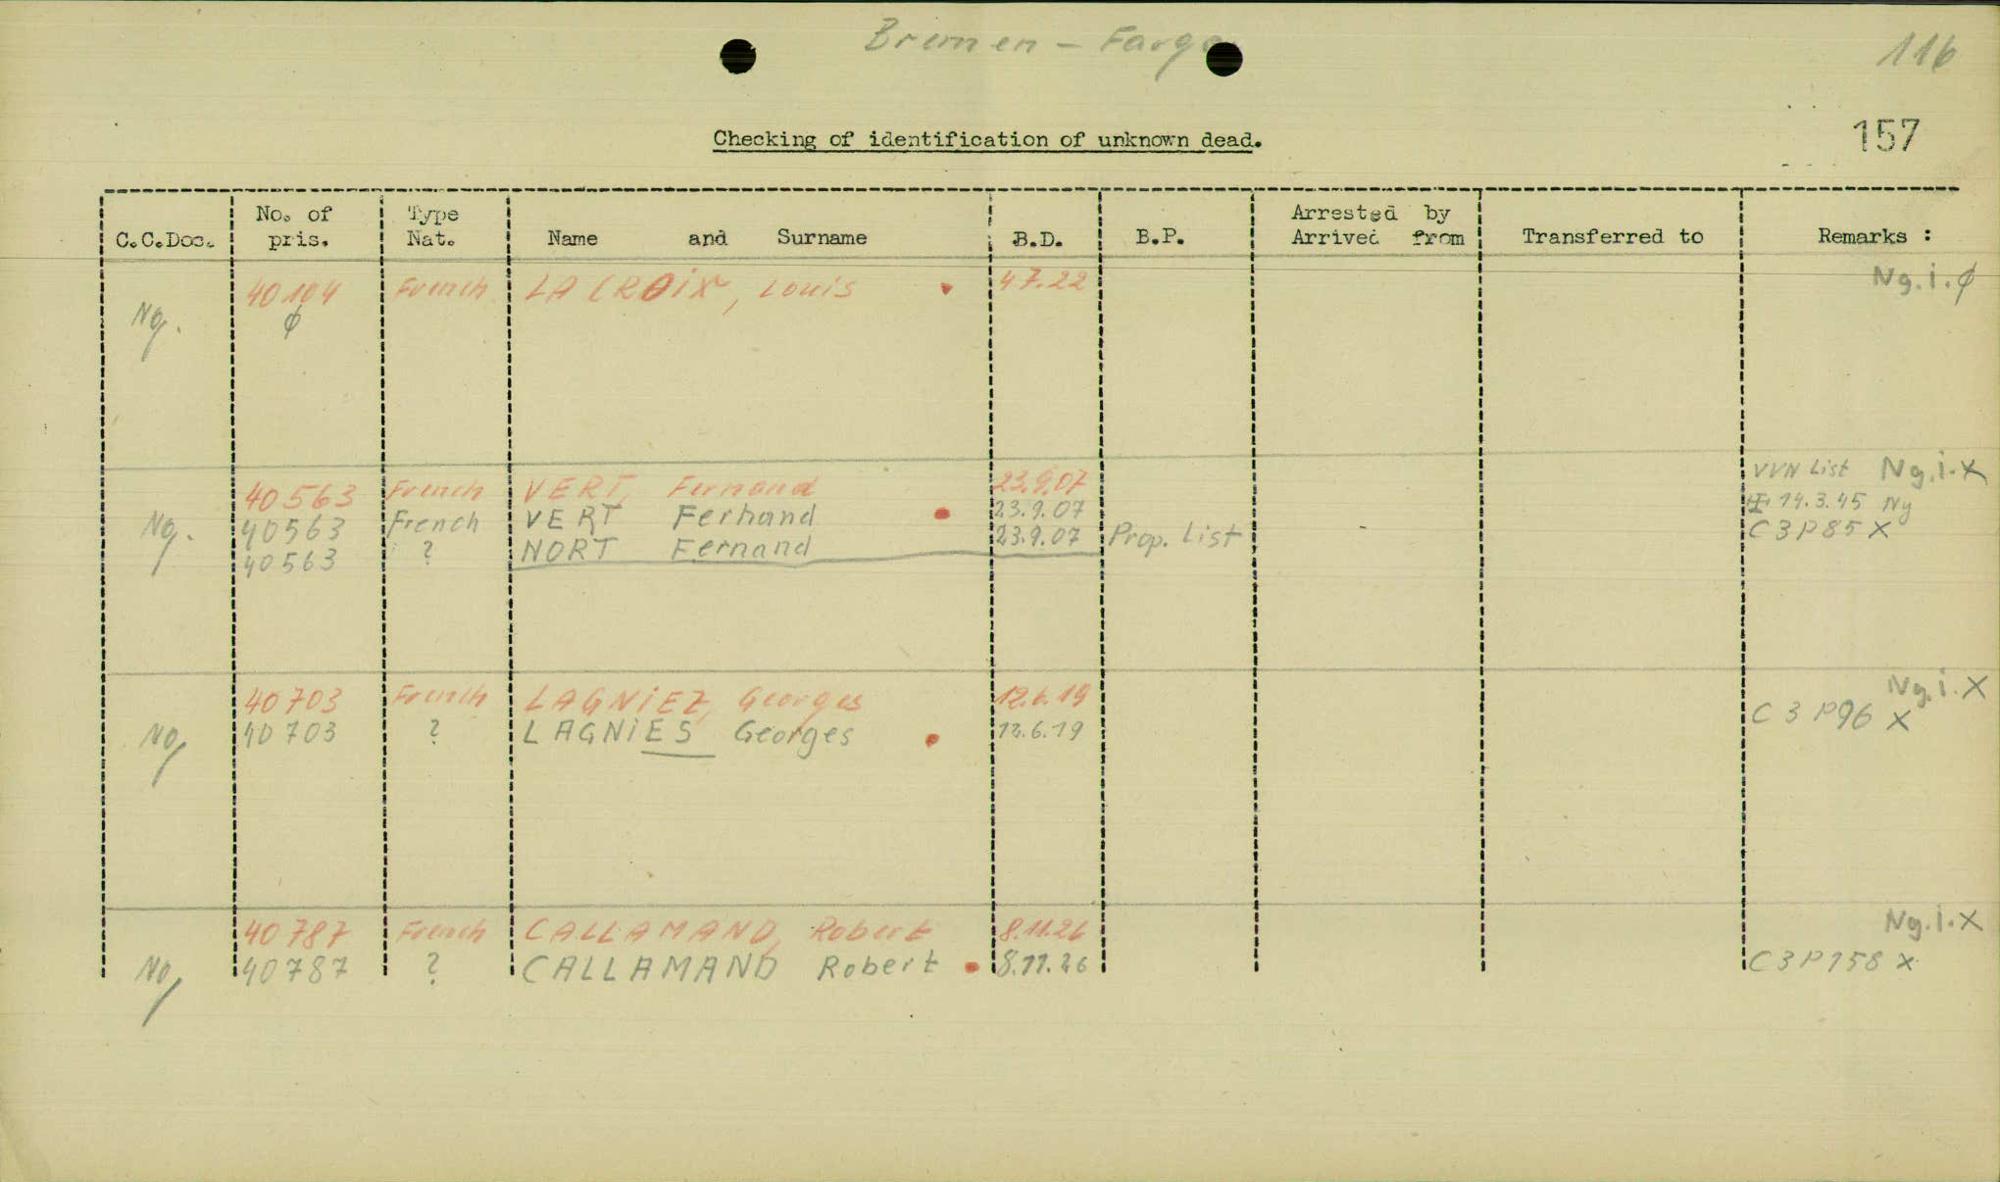 Bremen - Farge
116
Checking of identification of unknown dead.
157
C.C.Doc. No. of pris. Type Nat. Name and Surname B.D. B.P. Arrested by Arrived from Transferred to Remarks :
Ng. 40104 French LACROiX, Louis 4.7.22 Ng.i.ϕ
ϕ
40563 French VERT, Fernand 23.9.07 VVN List Ng.i.X
Ng. 40563 French VERT Fernand 23.9.07 14.3.45 Ng
40563 ? NORT Fernand 23.9.07 Prop. List C3P85 X
40703 French LAGNiEZ, Georges 12.6.19 Ng.i.X
Ng 40703 ? LAGNiES Georges 12.6.19 C3P96 X
40787 French CALLAMAND, Robert 8.11.26 Ng.i.X
Ng 40787 ? CALLAMAND Robert 8.11.26 C3P158 X